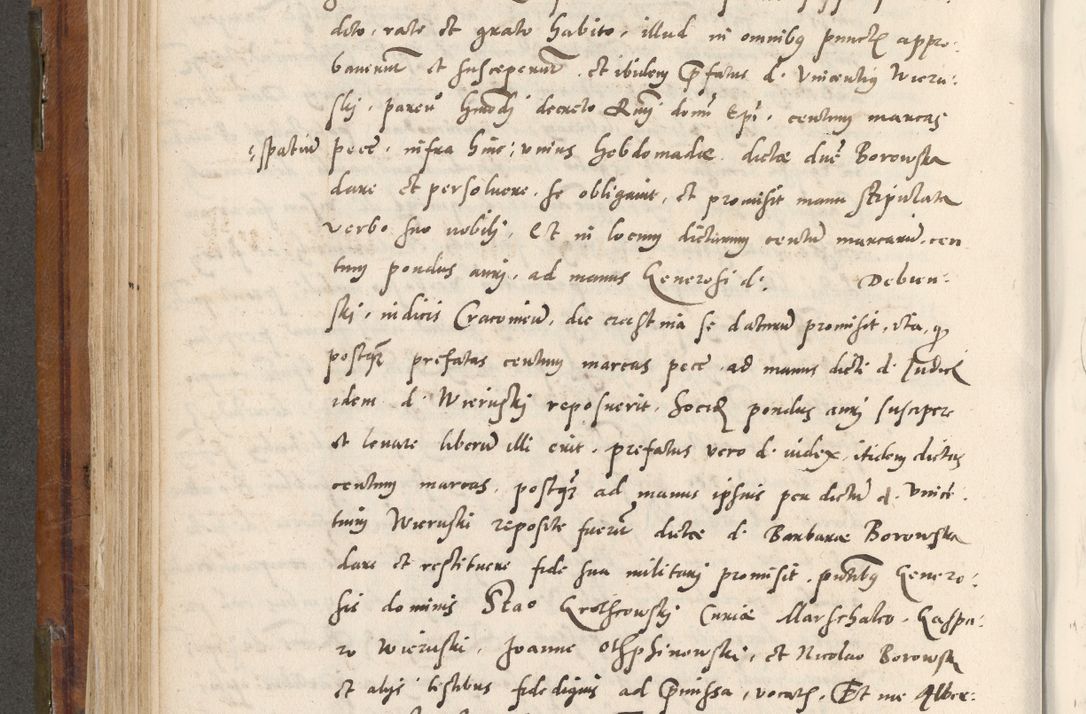 dicto, rate et grato habito, illud in omnibus punctis appro:
bauerunt et susceperunt, et ibidem prefatus d. Vincentius Wieru:
ski, parens huiusmodi decreto domini Epi, centum marcas
spatium pece, infra hinc; vnius hebdomadæ dictæ dne Borowska
dare et persoluere, se obligauit, et promisit manu stipulata
verbo suo nobili, Et in locum dictarum centum marcarum, cen
tum pondus auri, ad manus Generosi d. Debien:
ski, iudicis Cracouien, die crastina se daturum promisit, ita, quod
postquam prefatas centum marcas pece ad manus dicti d. Iudicis
idem d. Wieruski reposuerit, hocce pondus auri suscipere
et leuare liberum illi erit, prefatus vero d. iudex, itidem dictas
centum marcas, postquam ad manus ipsius per dictum d. Vincen
tium Wieruski reposite fuerint dictæ d. Barbaræ Borowska
dare et restituere fide sua militari promisit, presentibus Genero:
sis dominis Stao Grothowski Curiæ Marschalco, Caspa:
ro Wieruski, Joanne Othphinowski, et Nicolao Borowsk
et alijs testibus fidedignis ad premissa, vocatis, Et me Alber: